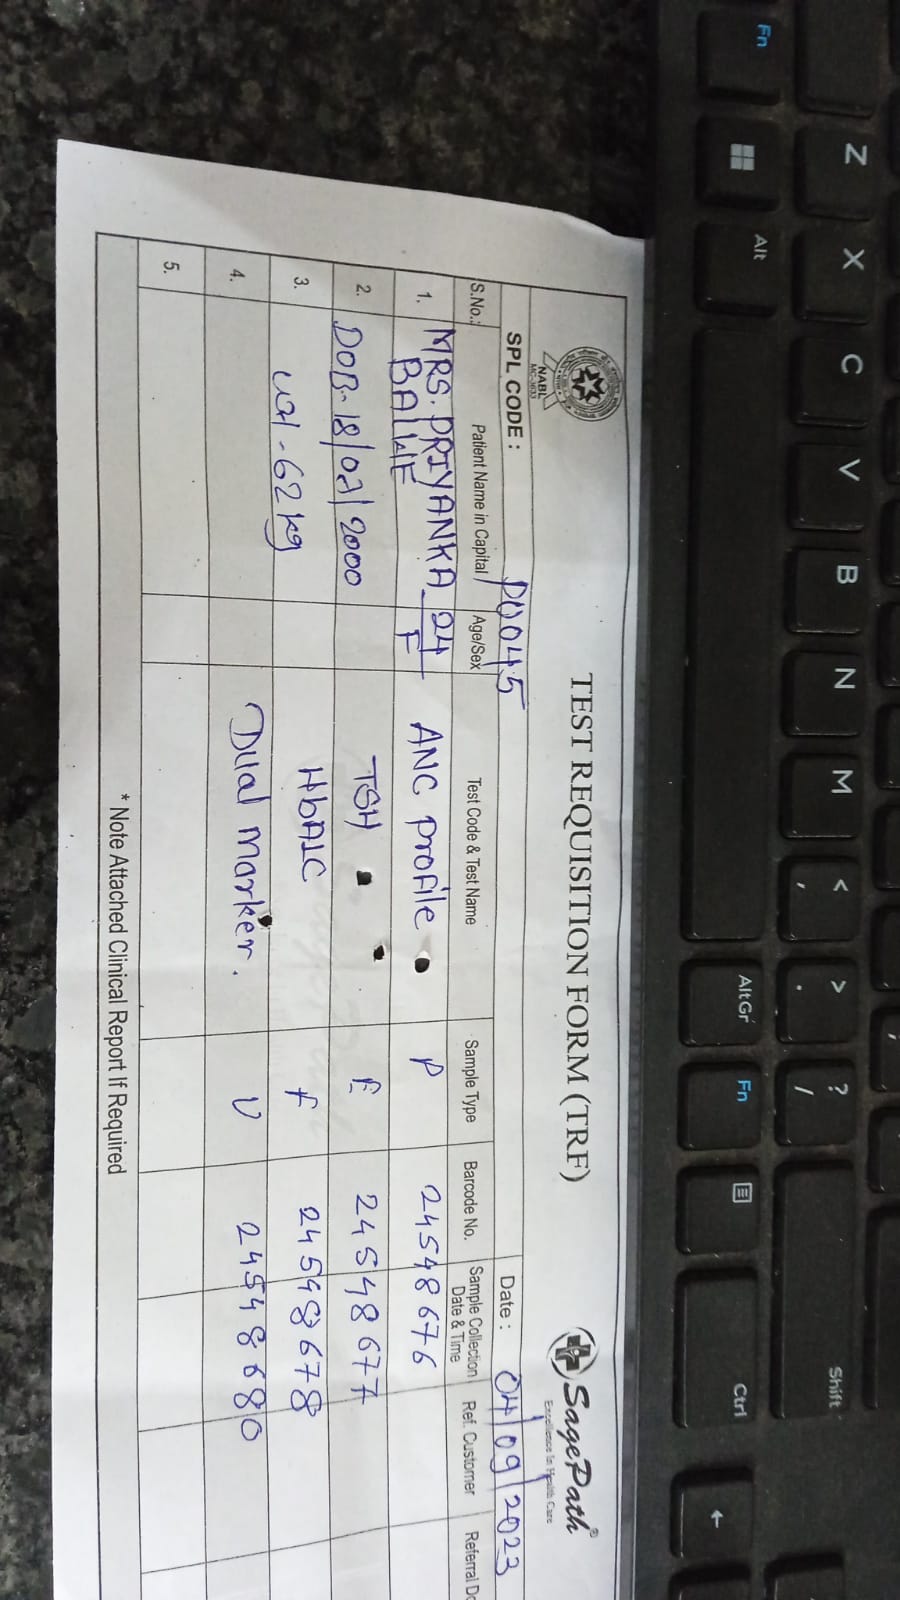 TEST REQUISITION FORM (TRF)
NABL
MC-3033
SagePath®
Excellence In Health Care
SPL CODE : P0045 Date : 04/09/2023
S.No.: Patient Name in Capital Age/Sex Test Code & Test Name Sample Type Barcode No. Sample Collection Date & Time Ref. Customer Referral
1. MRS. PRIYANKA 24/F ANC Profile P 24548676
2. DOB-18/02/2000 TSH E 24548677
3. wt-62kg HbA1C F 24548678
4. Dual Marker. V 24548680
5.
* Note Attached Clinical Report If Required
Fn Alt AltGr Fn Ctrl
Z X C V B N M < , > . ? / Shift